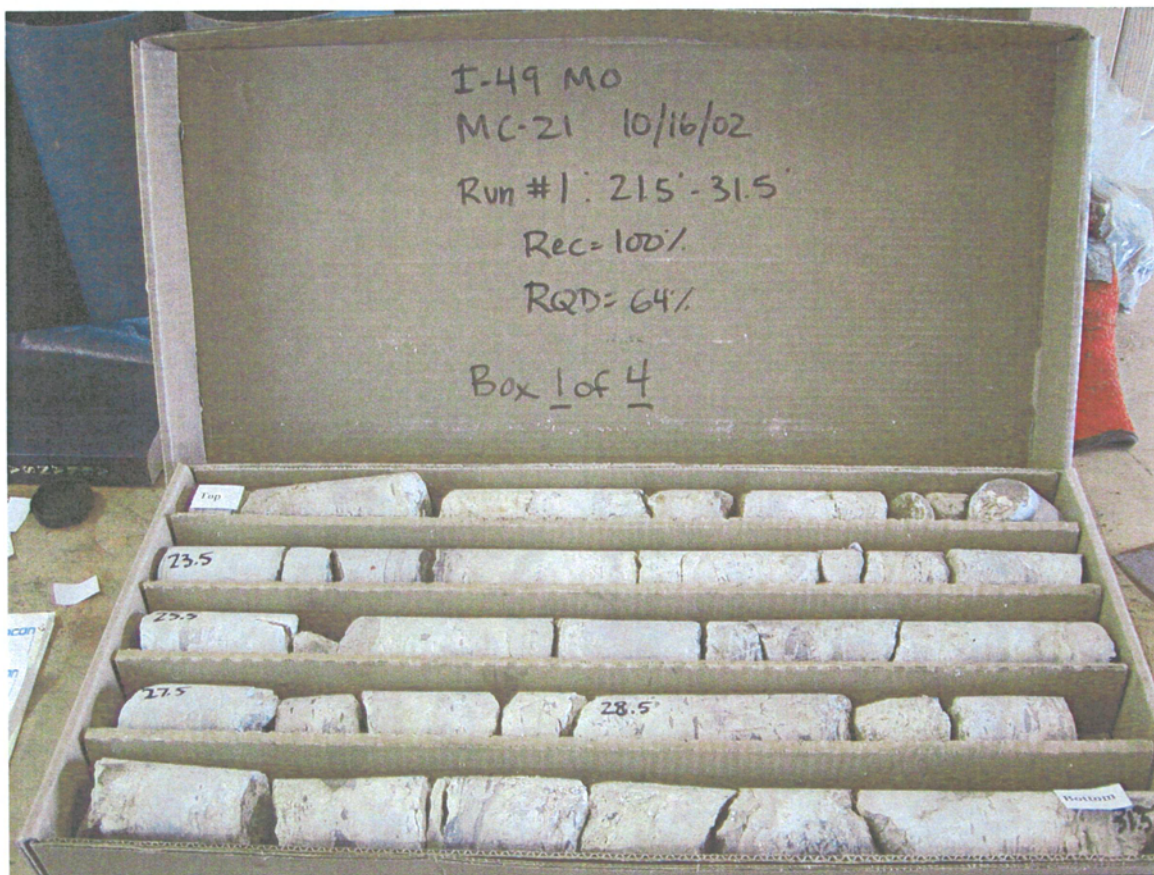 I-49 MO
MC-21 10/16/02
Run #1: 21.5'-31.5'
Rec=100%
RQD=64%
Box 1 of 4
Top
23.5
25.5
27.5
28.5
Bottom
31.5